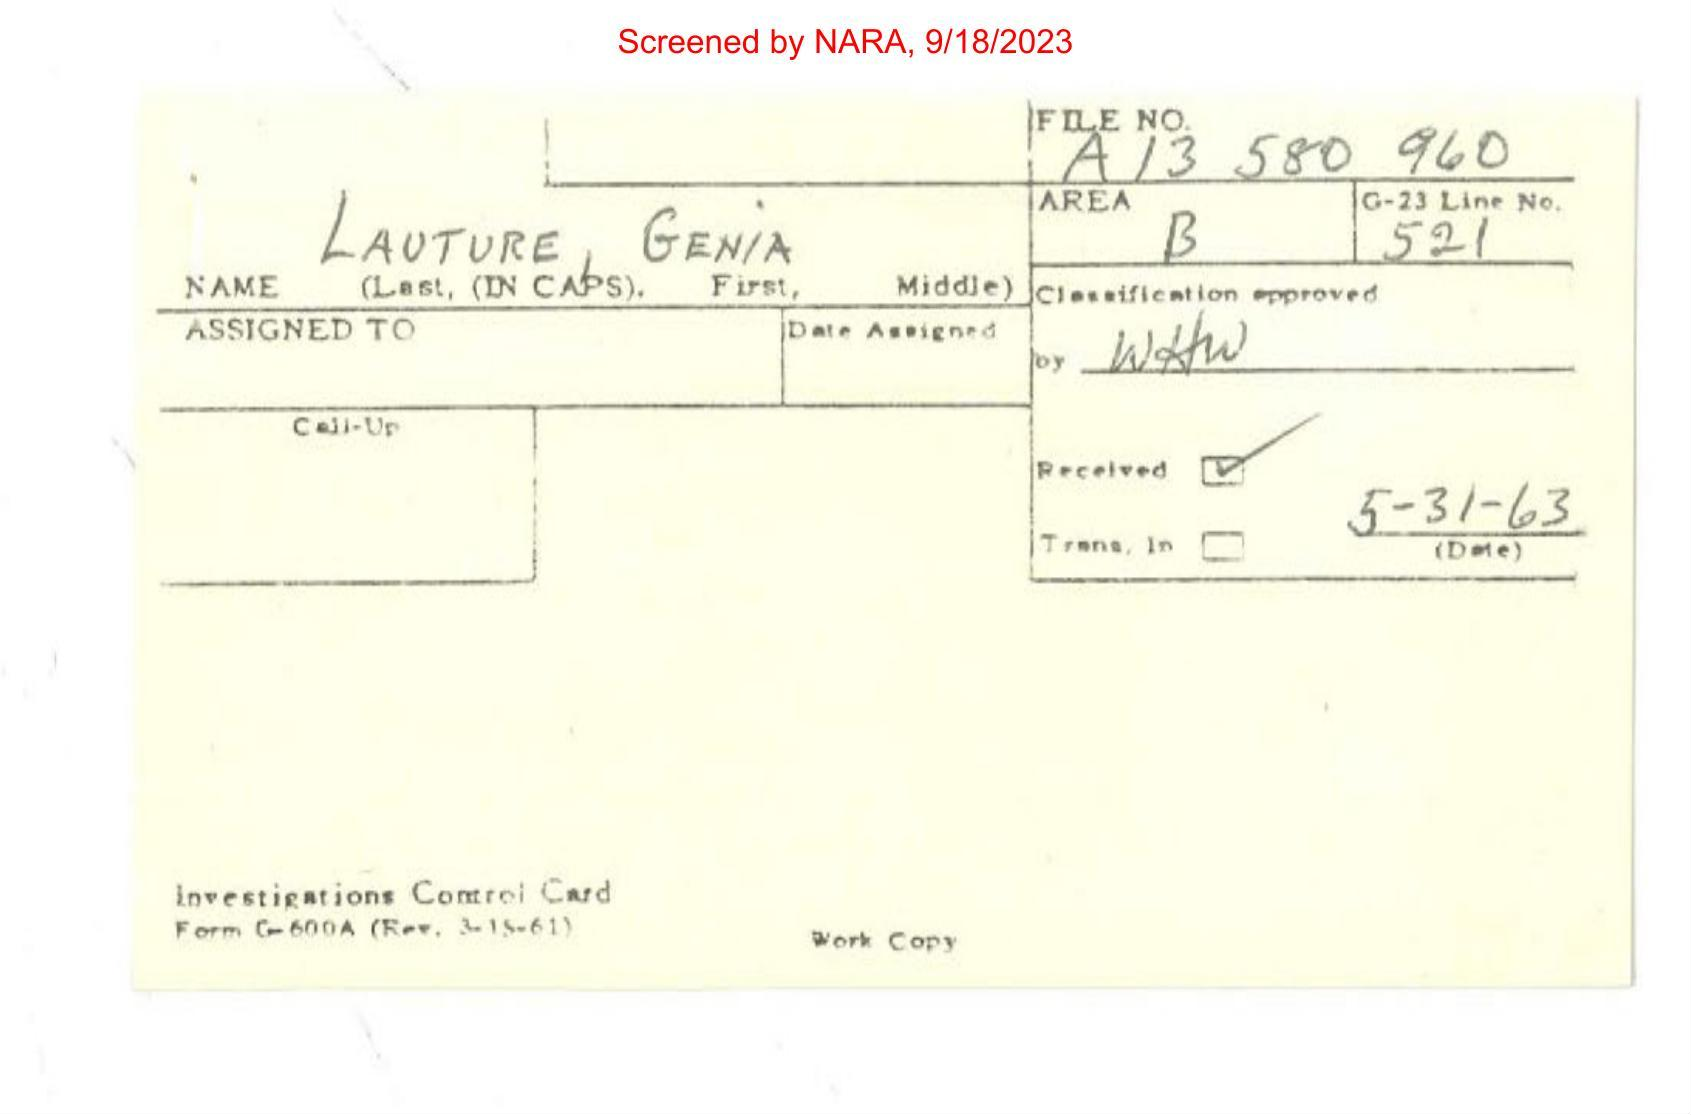 Screened by NARA, 9/18/2023
FILE NO.
A13 580 960
AREA
B
G-23 Line No.
521
LAUTURE, GENIA
NAME (Last, (IN CAPS). First, Middle)
Classification approved
by WHW
ASSIGNED TO
Date Assigned
Call-Up
Received
5-31-63
Trans. In
(Date)
Investigations Control Card
Form G-600A (Rev. 3-15-61)
Work Copy